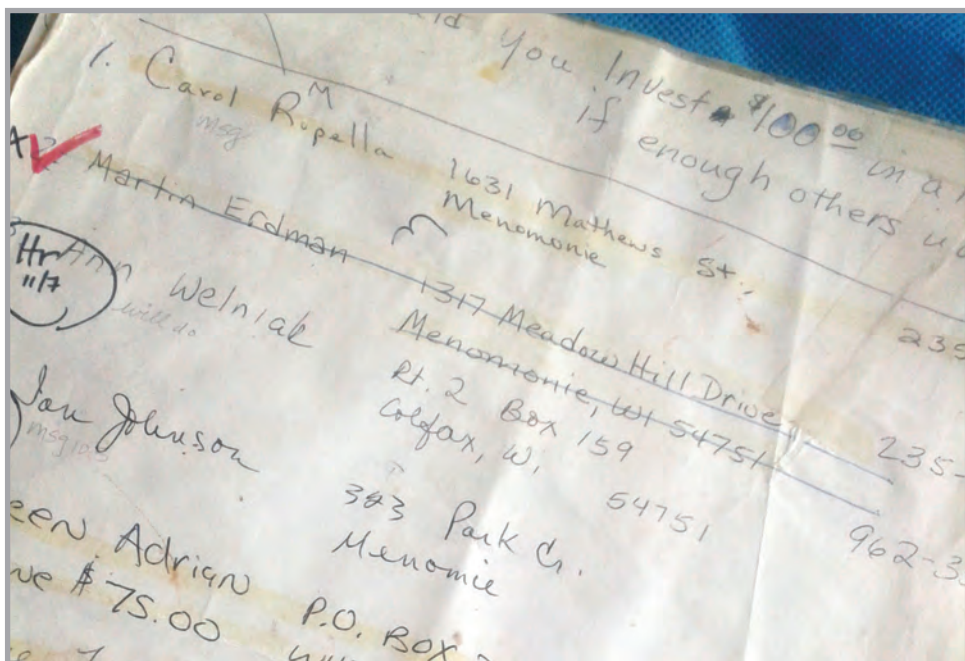 You Invest $100.00 in a
if enough others
1. Carol Rupella 1631 Mathews St.,
M
msg
Menomonie
235
2 Martin Erdman 1317 Meadow Hill Drive
Menomonie, WI 54751
235-
Ann Welniak Rt. 2 Box 159
Hr
11/7
will do
Colfax, W. 54751
962-3
Jan Johnson 323 Park Ct.
msg
Menomie
een Adrian P.O. Box
$75.00